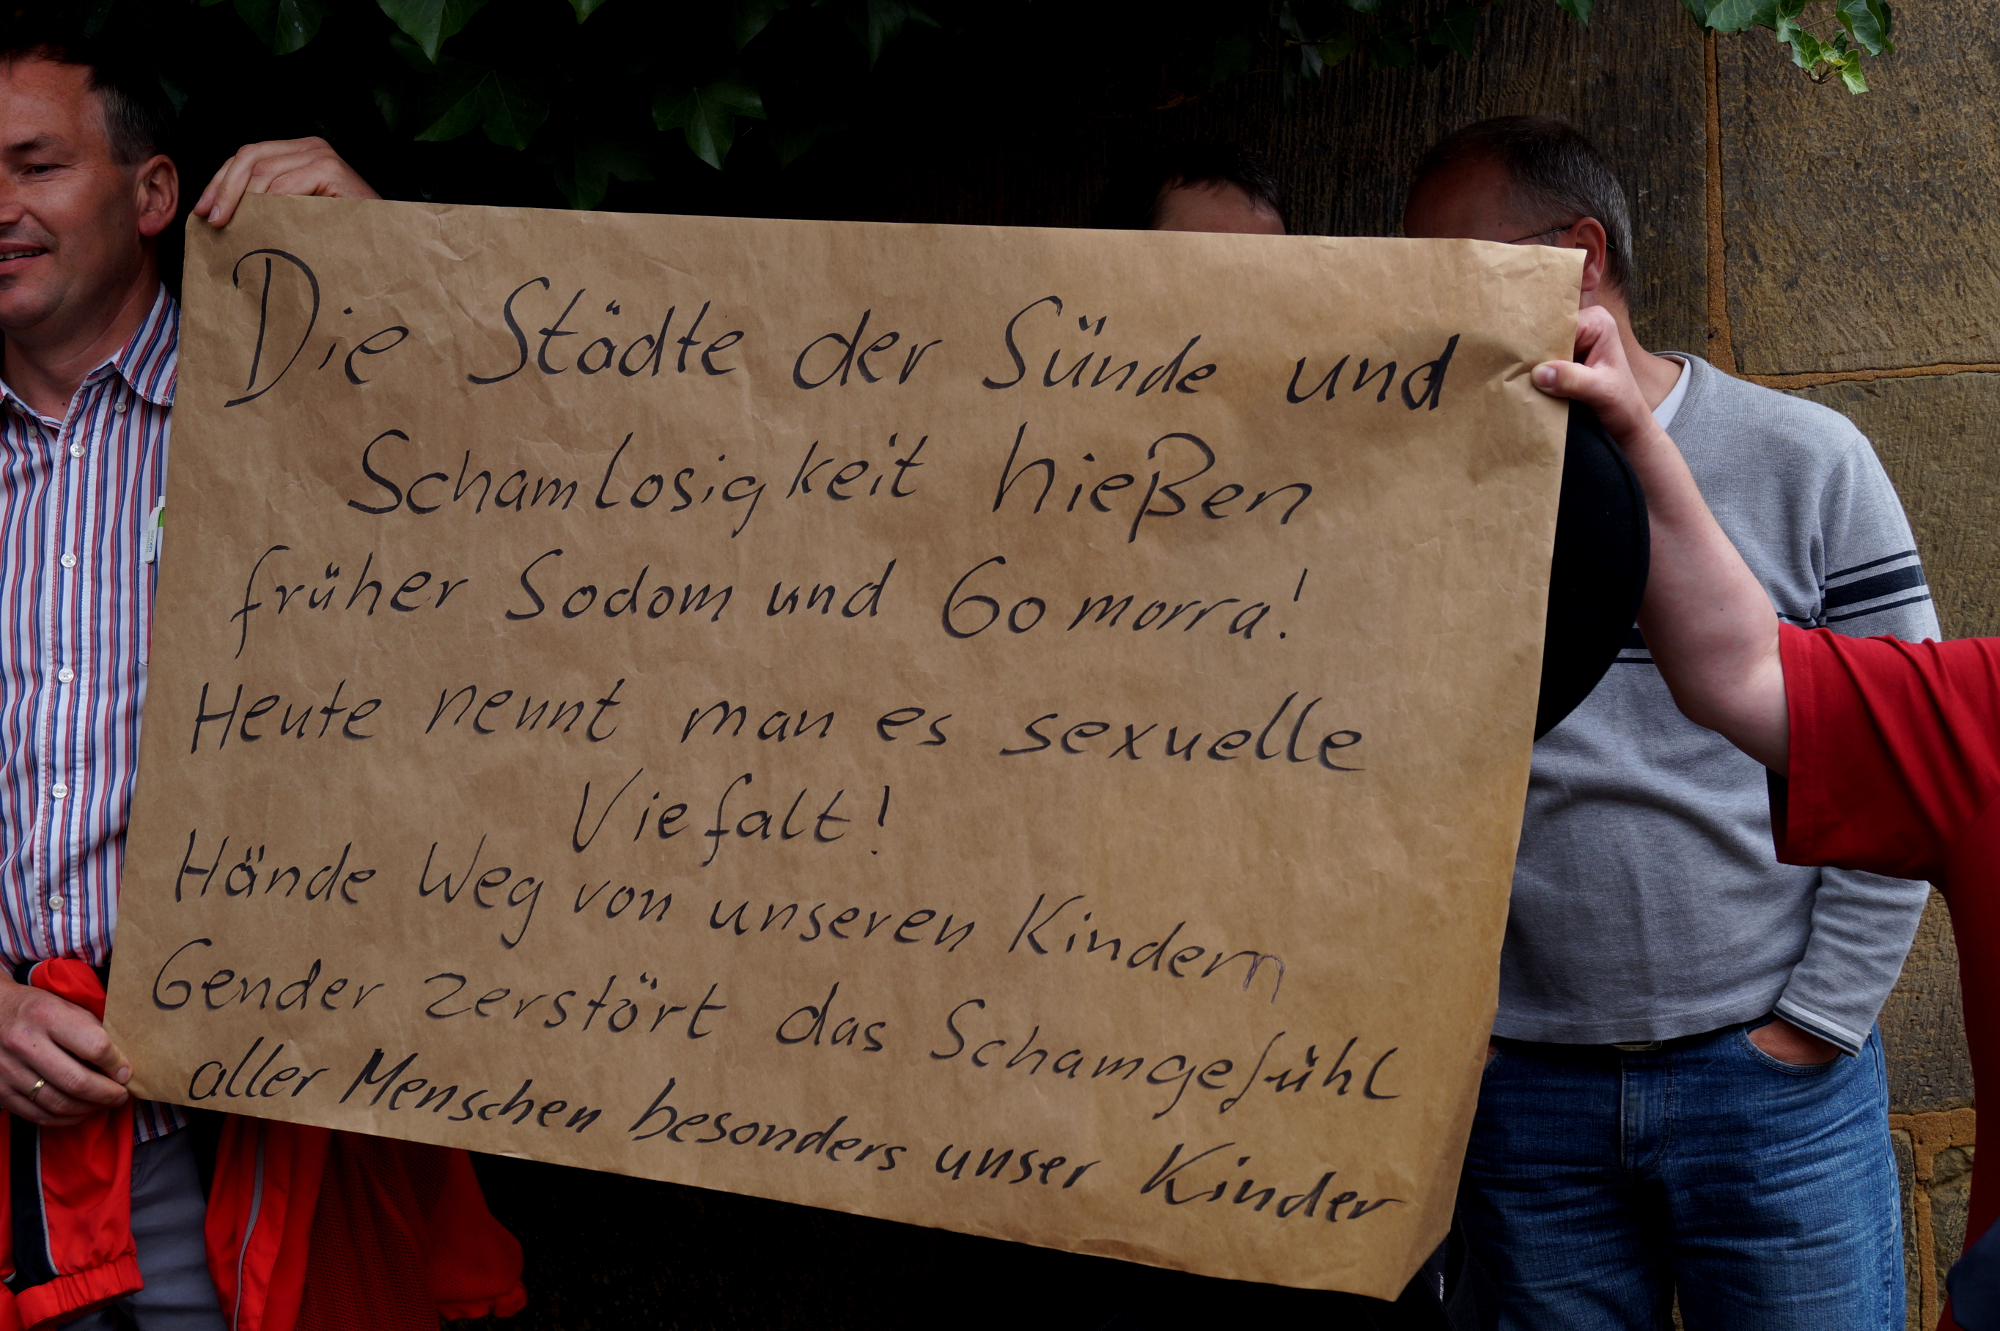 Die Städte der Sünde und
Schamlosigkeit hießen
früher Sodom und Gomorra!
Heute nennt man es sexuelle
Viefalt!
Hände Weg von unseren Kindern
Gender zerstört das Schamgefühl
aller Menschen besonders unser Kinder